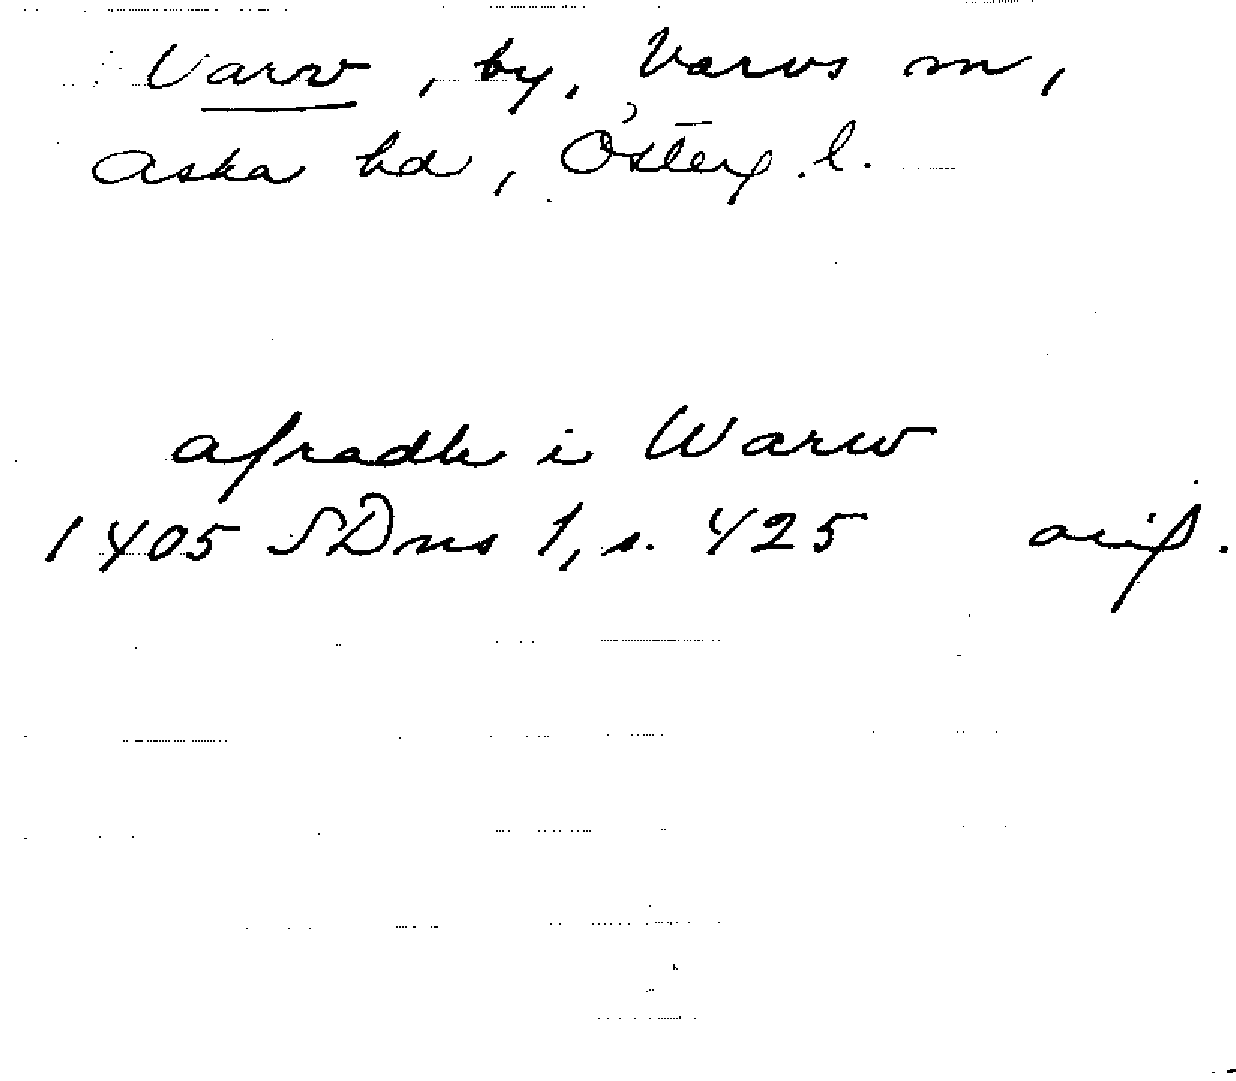 Varv, by, Varvs sn,
Aska hd, Österg. l.
afradh i Warw
1405 SDns 1, s. 425 orig.